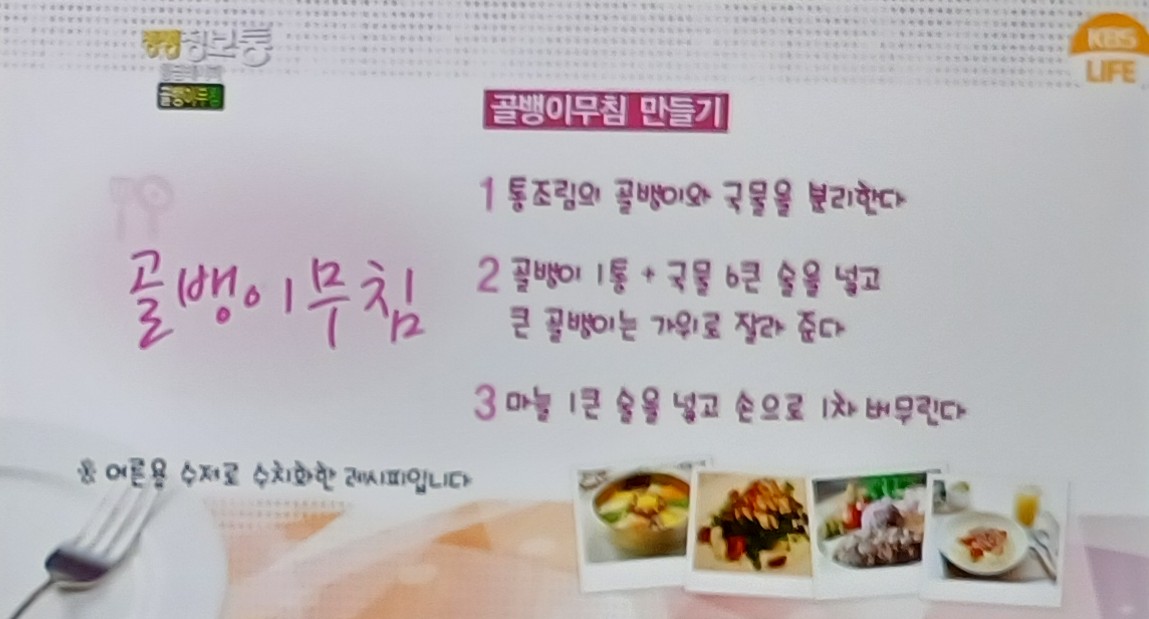 생생정보통
골뱅이무침
KBS
LIFE
골뱅이무침 만들기
골뱅이무침
1 통조림의 골뱅이와 국물을 분리한다
2 골뱅이 1통 + 국물 6큰 술을 넣고
큰 골뱅이는 가위로 잘라 준다
3 마늘 1큰 술을 넣고 손으로 1차 버무린다
※ 어른용 수저로 수치화한 레시피입니다